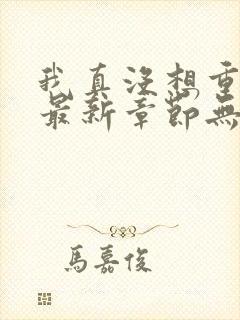 我真沒想重
最新章節無
馬嘉俊